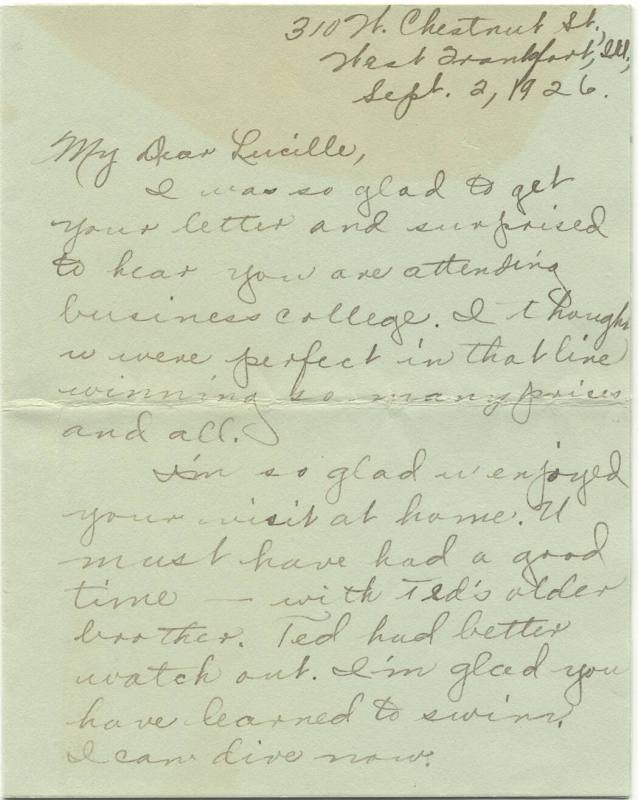 310 W. Chestnut St.,
West Frankfort, Ill.,
Sept. 2, 1926.
My Dear Lucille,
I was so glad to get
your letter and surprised
to hear you are attending
business college. I though
u were perfect in that line
winning so many prizes
and all.
I'm so glad u enjoyed
your visit at home. U
must have had a good
time — with Ted's older
brother. Ted had better
watch out. I'm glad you
have learned to swim.
I can dive now.